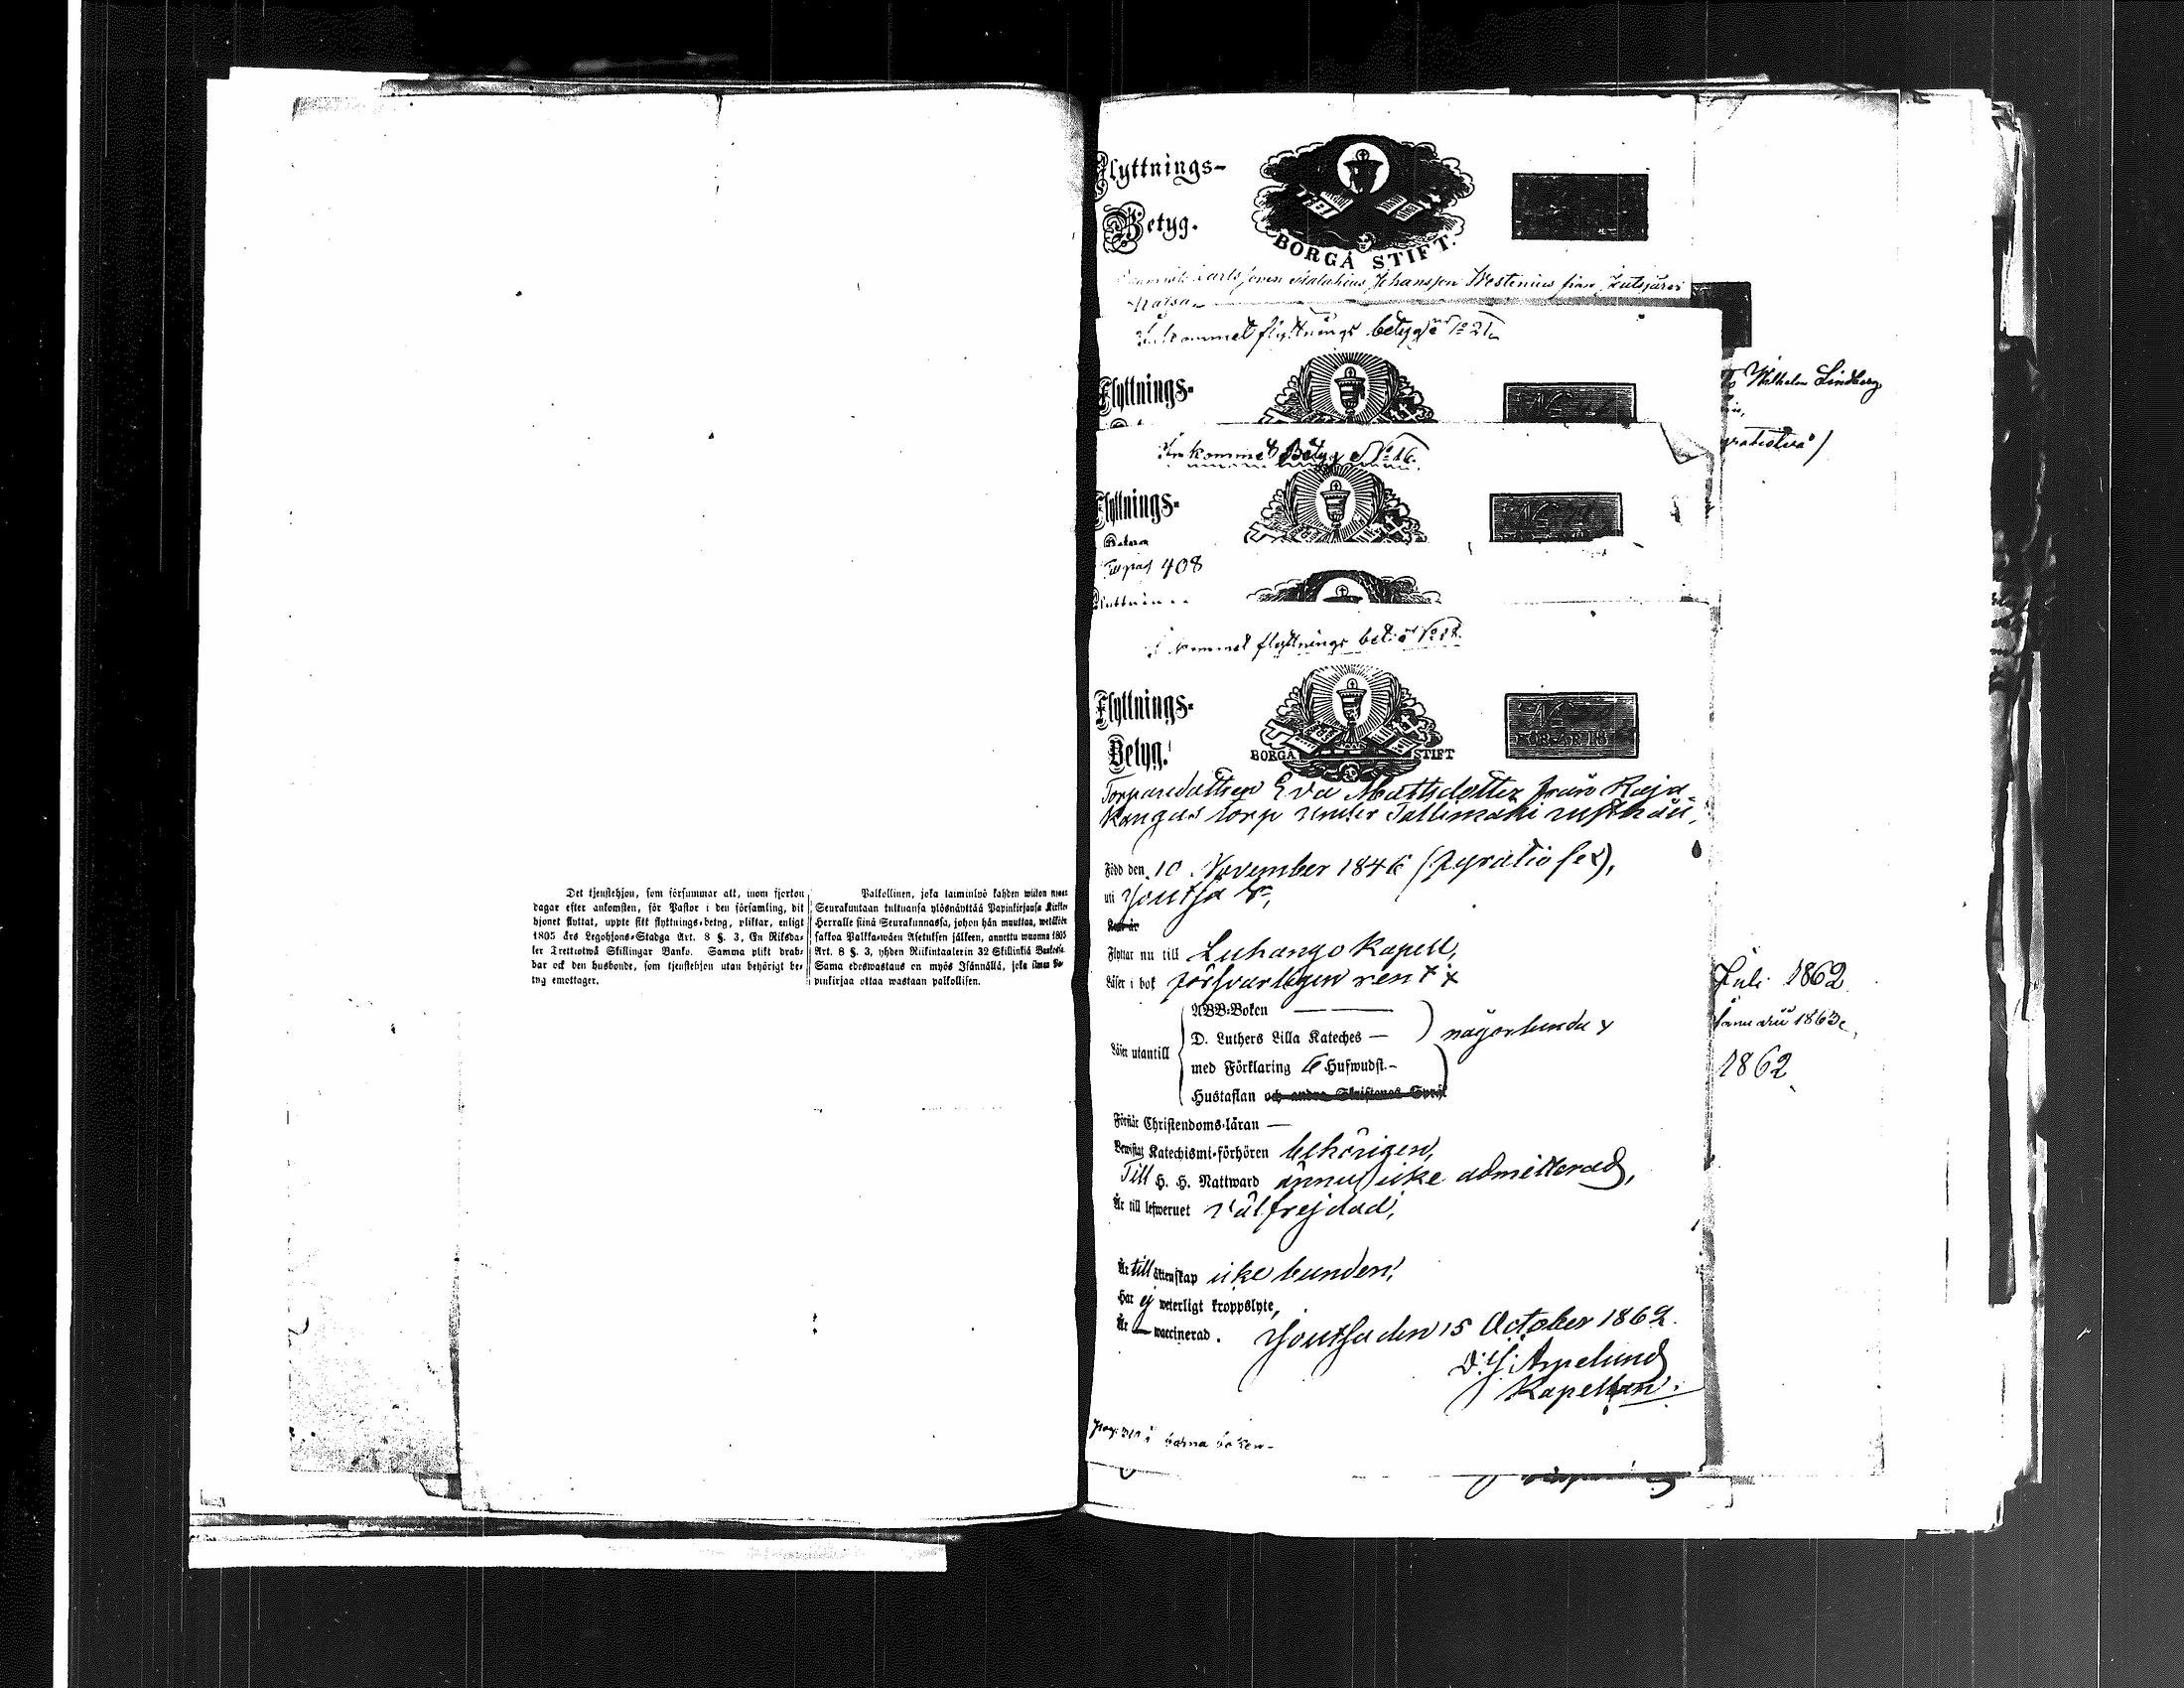 Det tjenstehjon, som försummar att, inom fjorton
dagar efter ankomsten, för Pastor i den församling, dit
hjonet flyttat, uppte sitt flyttnings-betyg, pliktar, enligt
1805 års Legohjons-Stadga Art. 8 §. 3, En Riksda-
ler Trettiotwå Skillingar Banko. Samma plikt drab-
bar ock den husbonde, som tjenstehjon utan behörigt be-
tyg emottager.
Palkollinen, joka laiminlyö kahden wiikon
Seurakuntaan tultuansa ylösnäyttää Papinkirjansa Kirkko
Herralle siinä Seurakunnassa, johon hän muuttaa, wetäköön
sakkoa Palkka-wäen Asetuksen jälkeen, annettu wuonna 1805
Art. 8 §. 3, yhden Riikintaalerin 32 Skillinkiä Bankossa.
Sama edeswastaus on myös Isännällä, joka ilman Pa-
pinkirjaa ottaa wastaan palkollisen.
Flyttnings-
Betyg.
BORGÅ STIFT.
Johansson Westenius från
flyttnings betyg No 21
Flyttnings-
Wilhelm Lindberg
Inkommet Betyg No 16.
Flyttnings-
408
flyttnings
Flyttnings-
Betyg.
BORGÅ STIFT
FÖR ÅR 18
Torparedottren Eva Mattsdotter från Raja-
kangas torp under Tallimäki
Född den 10 November 1846
uti Joutsa
Flyttar nu till Luhango Kapell,
Läser i bok försvarligen rent
ABB-Boken
D. Luthers Lilla Kateches — någorlunda
Läser utantill
med Förklaring 6 Hufwudst.
Hustaflan och andra Skriftenes Språk
Förstår Christendoms-läran —
Bewistat Katechismi-förhören behörigen,
Till H. H. Nattward ännu icke admitterad,
Är till lefwernet välfrejdad,
Är till äktenskap icke bunden,
Har ej weterligt kroppslyte,
Är — waccinerad.
Joutsa den 15 October 1862.
Appelund
Kapellan.
Juli 1862
Januarii 1863
1862